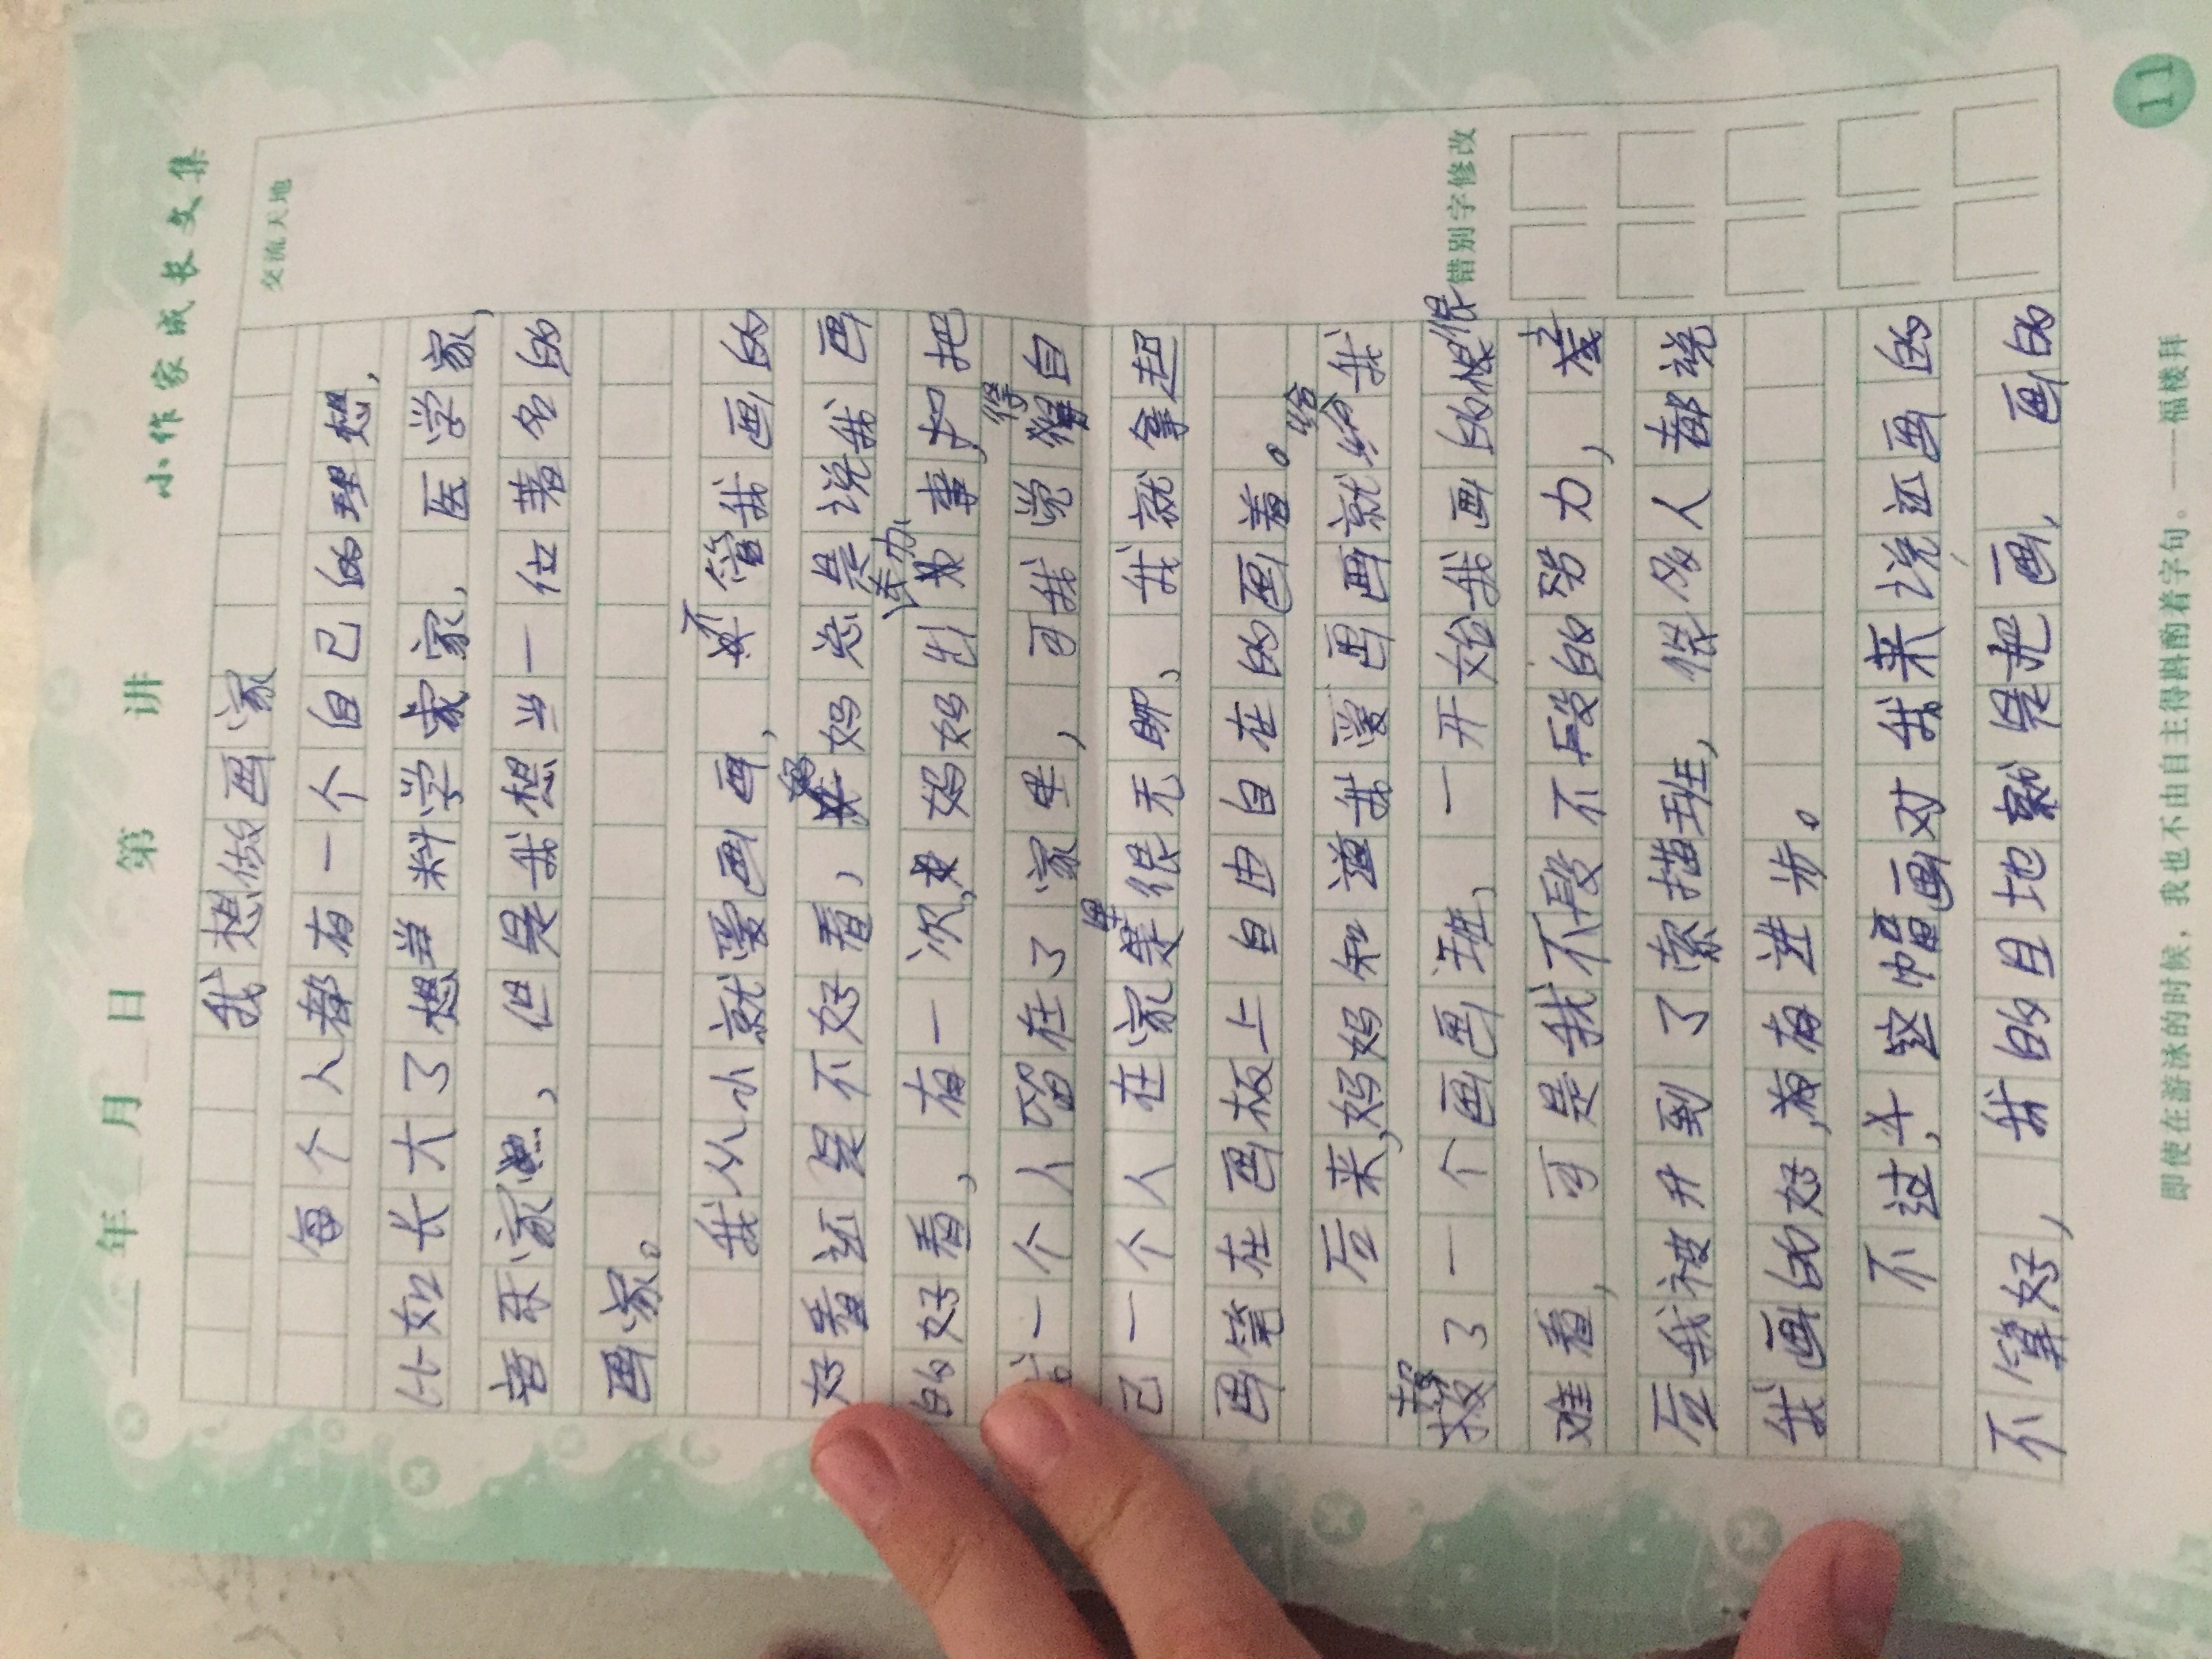 小作家成长文集
年 月 日 第 讲
交流天地
我想做画家
每个人都有一个自己的理想,
比如长大了想当料学家,医学家,
音乐家,但是我想当一位著名的
画家。
我从小就爱画画,不管我画的
好看还是不好看,妈妈总是说我画
的好看,有一次,妈妈出去办事,把
我一个人留在了家里,可我觉得自
己一个人在家里很无聊,我就拿起
画笔在画板上自由自在的画着。
后来,妈妈知道我爱画画就给我
报了一个画画班,一开始我画的很
难看,可是我不段不段的努力,
后我被升到了索描班,很多人都说
我画的好,有进步。
不过头,这幅画对我来说还画的
不算好,我的目地就是把画,画的
错别字修改
即使在游泳的时候,我也不由自主得斟酌着字句。——福楼拜
11